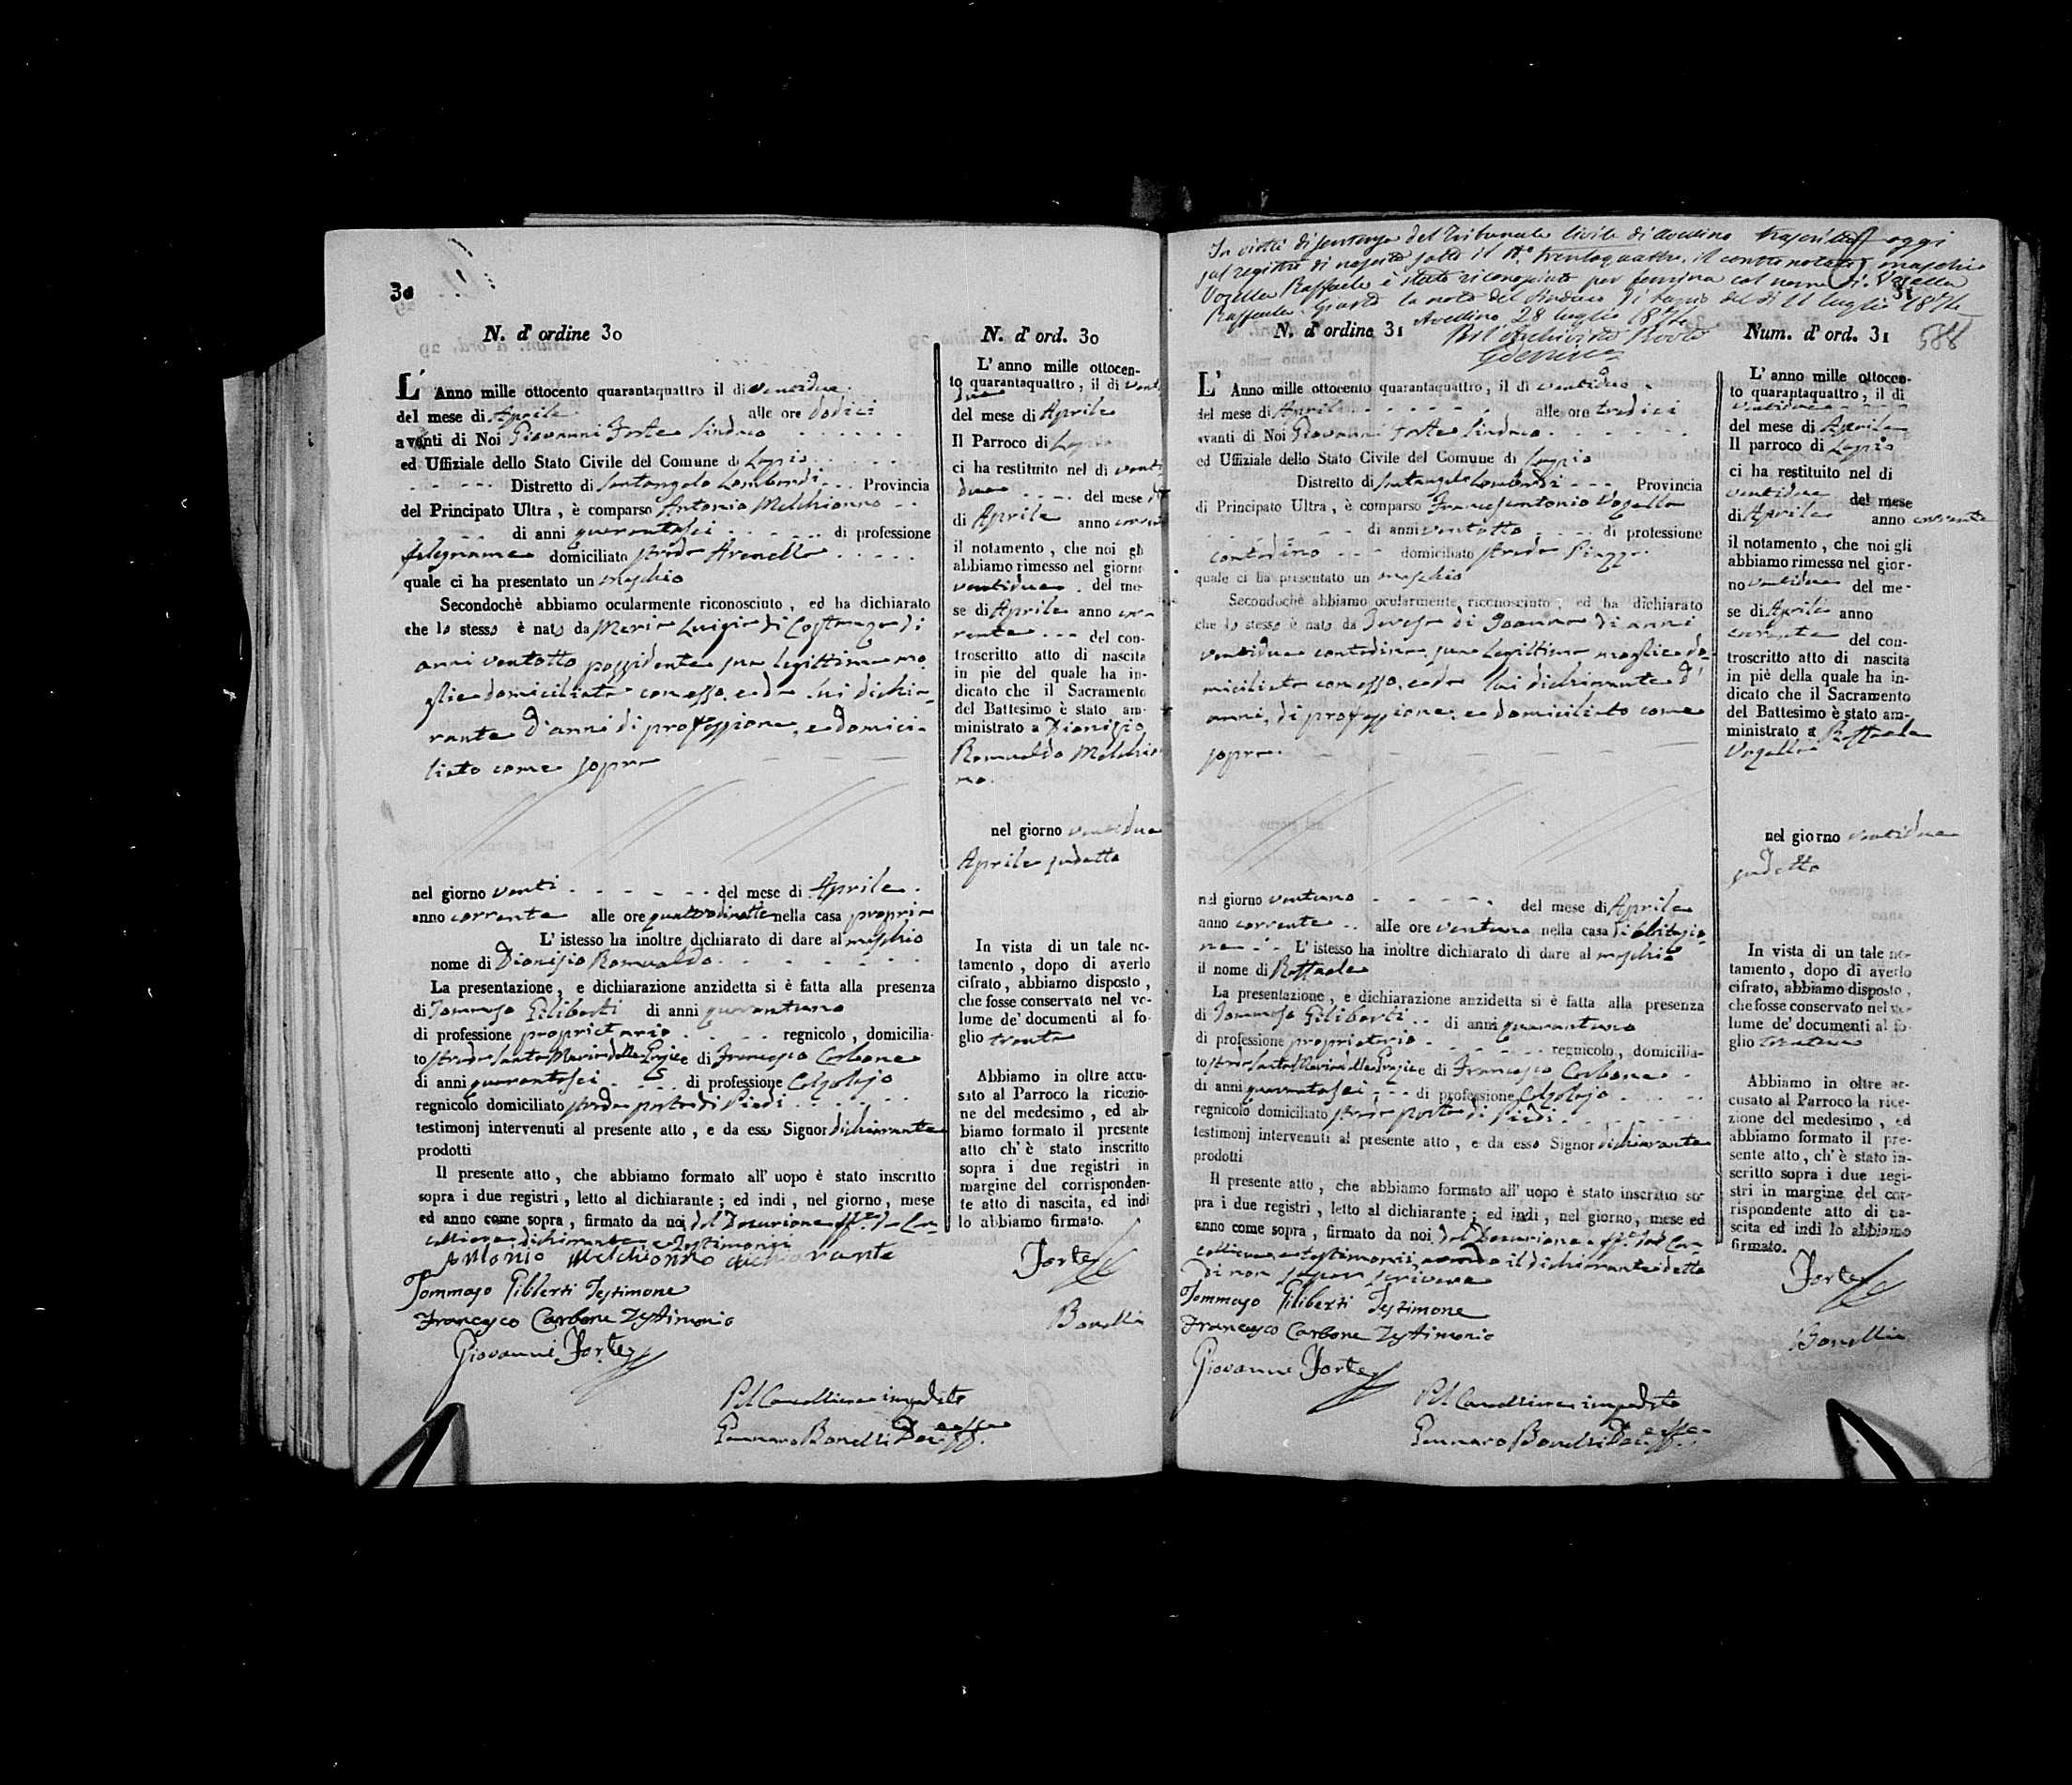 30
N. d' ordine 30
L' Anno mille ottocento quarantaquattro il di ventidue
del mese di Aprile alle ore dodici
avanti di Noi Giovanni Forte Sindaco
ed Uffiziale dello Stato Civile del Comune di Lapio
Distretto di Santangelo Lombardi Provincia
del Principato Ultra, è comparso Antonio Melchionno
di anni quarantasei di professione
falegname domiciliato strada Arenella
quale ci ha presentato un maschio
Secondochè abbiamo ocularmente riconosciuto, ed ha dichiarato
che lo stesso è nato da Maria Luigia di Costanzo di
anni ventotto possidente sua legittima mo-
glie domiciliata con esso, e da lui dichia-
rante d'anni di professione, e domici-
liato come sopra
nel giorno venti del mese di Aprile
anno corrente alle ore quattordici nella casa propria
L' istesso ha inoltre dichiarato di dare al maschio
nome di Dionisio Romualdo
La presentazione, e dichiarazione anzidetta si è fatta alla presenza
di Tommaso Giliberti di anni quarantuno
di professione proprietario regnicolo, domicilia-
to strada Santa Maria delle Grazie e di Francesco Carbone
di anni quarantasei di professione Calzolajo
regnicolo domiciliato strada porta di Piedi
testimonj intervenuti al presente atto, e da esso Signor dichiarante
prodotti
Il presente atto, che abbiamo formato all' uopo è stato inscritto
sopra i due registri, letto al dichiarante; ed indi, nel giorno, mese
ed anno come sopra, firmato da noi dal Decurione ff. da Can-
celliere dichiarante e Testimonii
Antonio Melchionno dichiarante
Tommaso Giliberti Testimone
Francesco Carbone Testimonio
Giovanni Forte
Pel Cancelliere impedito
Gennaro Bonelli Dec. ff.
N. d' ord. 30
L' anno mille ottocen-
to quarantaquattro, il di venti
due
del mese di Aprile
Il Parroco di Lapio
ci ha restituito nel di venti
due del mese
di Aprile anno corrente
il notamento, che noi gli
abbiamo rimesso nel giorno
ventidue del me-
se di Aprile anno cor-
rente del con-
troscritto atto di nascita
in pie del quale ha in-
dicato che il Sacramento
del Battesimo è stato am-
ministrato a Dionisio
Romualdo Melchion
no.
nel giorno ventidue
Aprile sudetto
In vista di un tale no-
tamento, dopo di averlo
cifrato, abbiamo disposto,
che fosse conservato nel vo-
lume de' documenti al fo-
glio trenta
Abbiamo in oltre accu-
sato al Parroco la ricezio-
ne del medesimo, ed ab-
biamo formato il presente
atto ch' è stato inscritto
sopra i due registri in
margine del corrisponden-
te atto di nascita, ed indi
lo abbiamo firmato.
Forte
Bonelli
In virtù di sentenza del Tribunale Civile di Avellino trascritta oggi
sul registro di nascite sotto il N. trentaquattro, il contronotato maschio
Vozella Raffaele è stato riconosciuto per femina col nome di Vozella
Raffaela. Giusta la nota del Sindaco di Lapio del di 11 luglio 1874
Avellino 28 luglio 1874
31
588
N. d' ordine 31
L' Anno mille ottocento quarantaquattro, il di ventidue
del mese di Aprile alle ore tredici
avanti di Noi Giovanni Forte Sindaco
ed Uffiziale dello Stato Civile del Comune di Lapio
Distretto di Santangelo Lombardi Provincia
di Principato Ultra, è comparso Francescantonio Vozella
di anni ventotto di professione
contadino domiciliato strada Piazza
quale ci ha presentato un maschio
Secondochè abbiamo ocularmente riconosciuto, ed ha dichiarato
che lo stesso è nato da Teresa di Joanna di anni
ventidue contadina, sua legittima moglie do-
miciliata con esso, e da lui dichiarante d'
anni, di professione, e domiciliato come
sopra.
nel giorno ventuno del mese di Aprile
anno corrente alle ore ventuna nella casa di abitazio-
ne L' istesso ha inoltre dichiarato di dare al maschio
il nome di Raffaele
La presentazione, e dichiarazione anzidetta si è fatta alla presenza
di Tommaso Giliberti di anni quarantuno
di professione proprietario regnicolo, domicilia-
to strada Santa Maria delle Grazie e di Francesco Carbone
di anni quarantasei di professione Calzolajo
regnicolo domiciliato strada porta di Piedi
testimonj intervenuti al presente atto, e da esso Signor dichiarante
prodotti
Il presente atto, che abbiamo formato all' uopo è stato inscritto so-
pra i due registri, letto al dichiarante; ed indi, nel giorno, mese ed
anno come sopra, firmato da noi dal Decurione ff. dal Can-
celliere e testimonii, avendo il dichiarante detto
di non saper scrivere
Tommaso Giliberti Testimone
Francesco Carbone Testimonio
Giovanni Forte
Pel Cancelliere impedito
Gennaro Bonelli Dec. ff.
Num. d' ord. 31
L' anno mille ottocen-
to quarantaquattro, il di
ventidue
del mese di Aprile
Il parroco di Lapio
ci ha restituito nel di
ventidue del mese
di Aprile anno corrente
il notamento, che noi gli
abbiamo rimesso nel gior-
no ventidue del me-
se di Aprile anno
corrente del con-
troscritto atto di nascita
in piè della quale ha in-
dicato che il Sacramento
del Battesimo è stato am-
ministrato a Raffaele
Vozella
nel giorno ventidue
sudetto
In vista di un tale no-
tamento, dopo di averlo
cifrato, abbiamo disposto,
che fosse conservato nel vo-
lume de' documenti al fo-
glio trentuno
Abbiamo in oltre ac-
cusato al Parroco la rice-
zione del medesimo, ed
abbiamo formato il pre-
sente atto, ch' è stato in-
scritto sopra i due regi-
stri in margine del cor-
rispondente atto di na-
scita ed indi lo abbiamo
firmato.
Forte
Bonelli